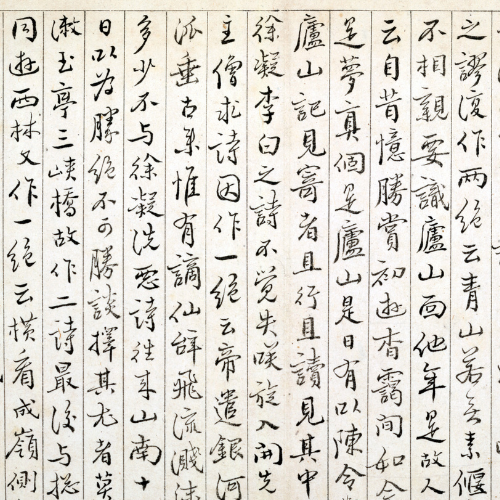 之謬復作兩絕云青山若無素偃
不相親要識廬山面他年是故人
云自昔憶勝賞初遊杳靄間如今
是夢真個是廬山是日有以陳令
廬山記見寄者且行且讀見其中
徐凝李白之詩不覺失咲旋入開先
主僧求詩因作一絕云帝遣銀河
派垂古來惟有謫仙辭飛流濺沫
多少不与徐凝洗惡詩往來山南十
日以為勝絕不可勝談擇其尤者莫
漱玉亭三峽橋故作二詩最後与摠
同遊西林又作一絕云橫看成嶺側